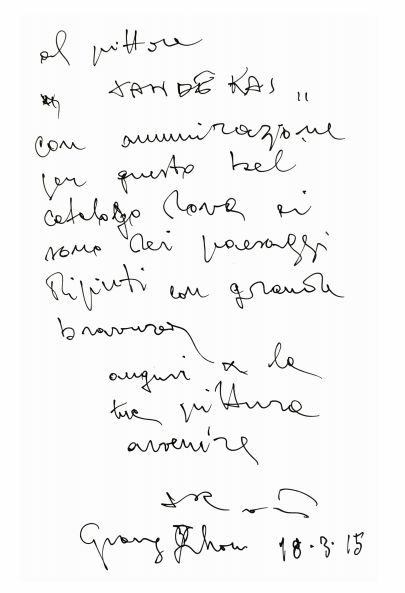 al pittore
"JAN DE KAS"
con ammirazione
per questo bel
catalogo dove ci
sono dei paesaggi
dipinti con grande
bravura
auguri x la
tua pittura
avvenire
Guang Zhou 18.3.15